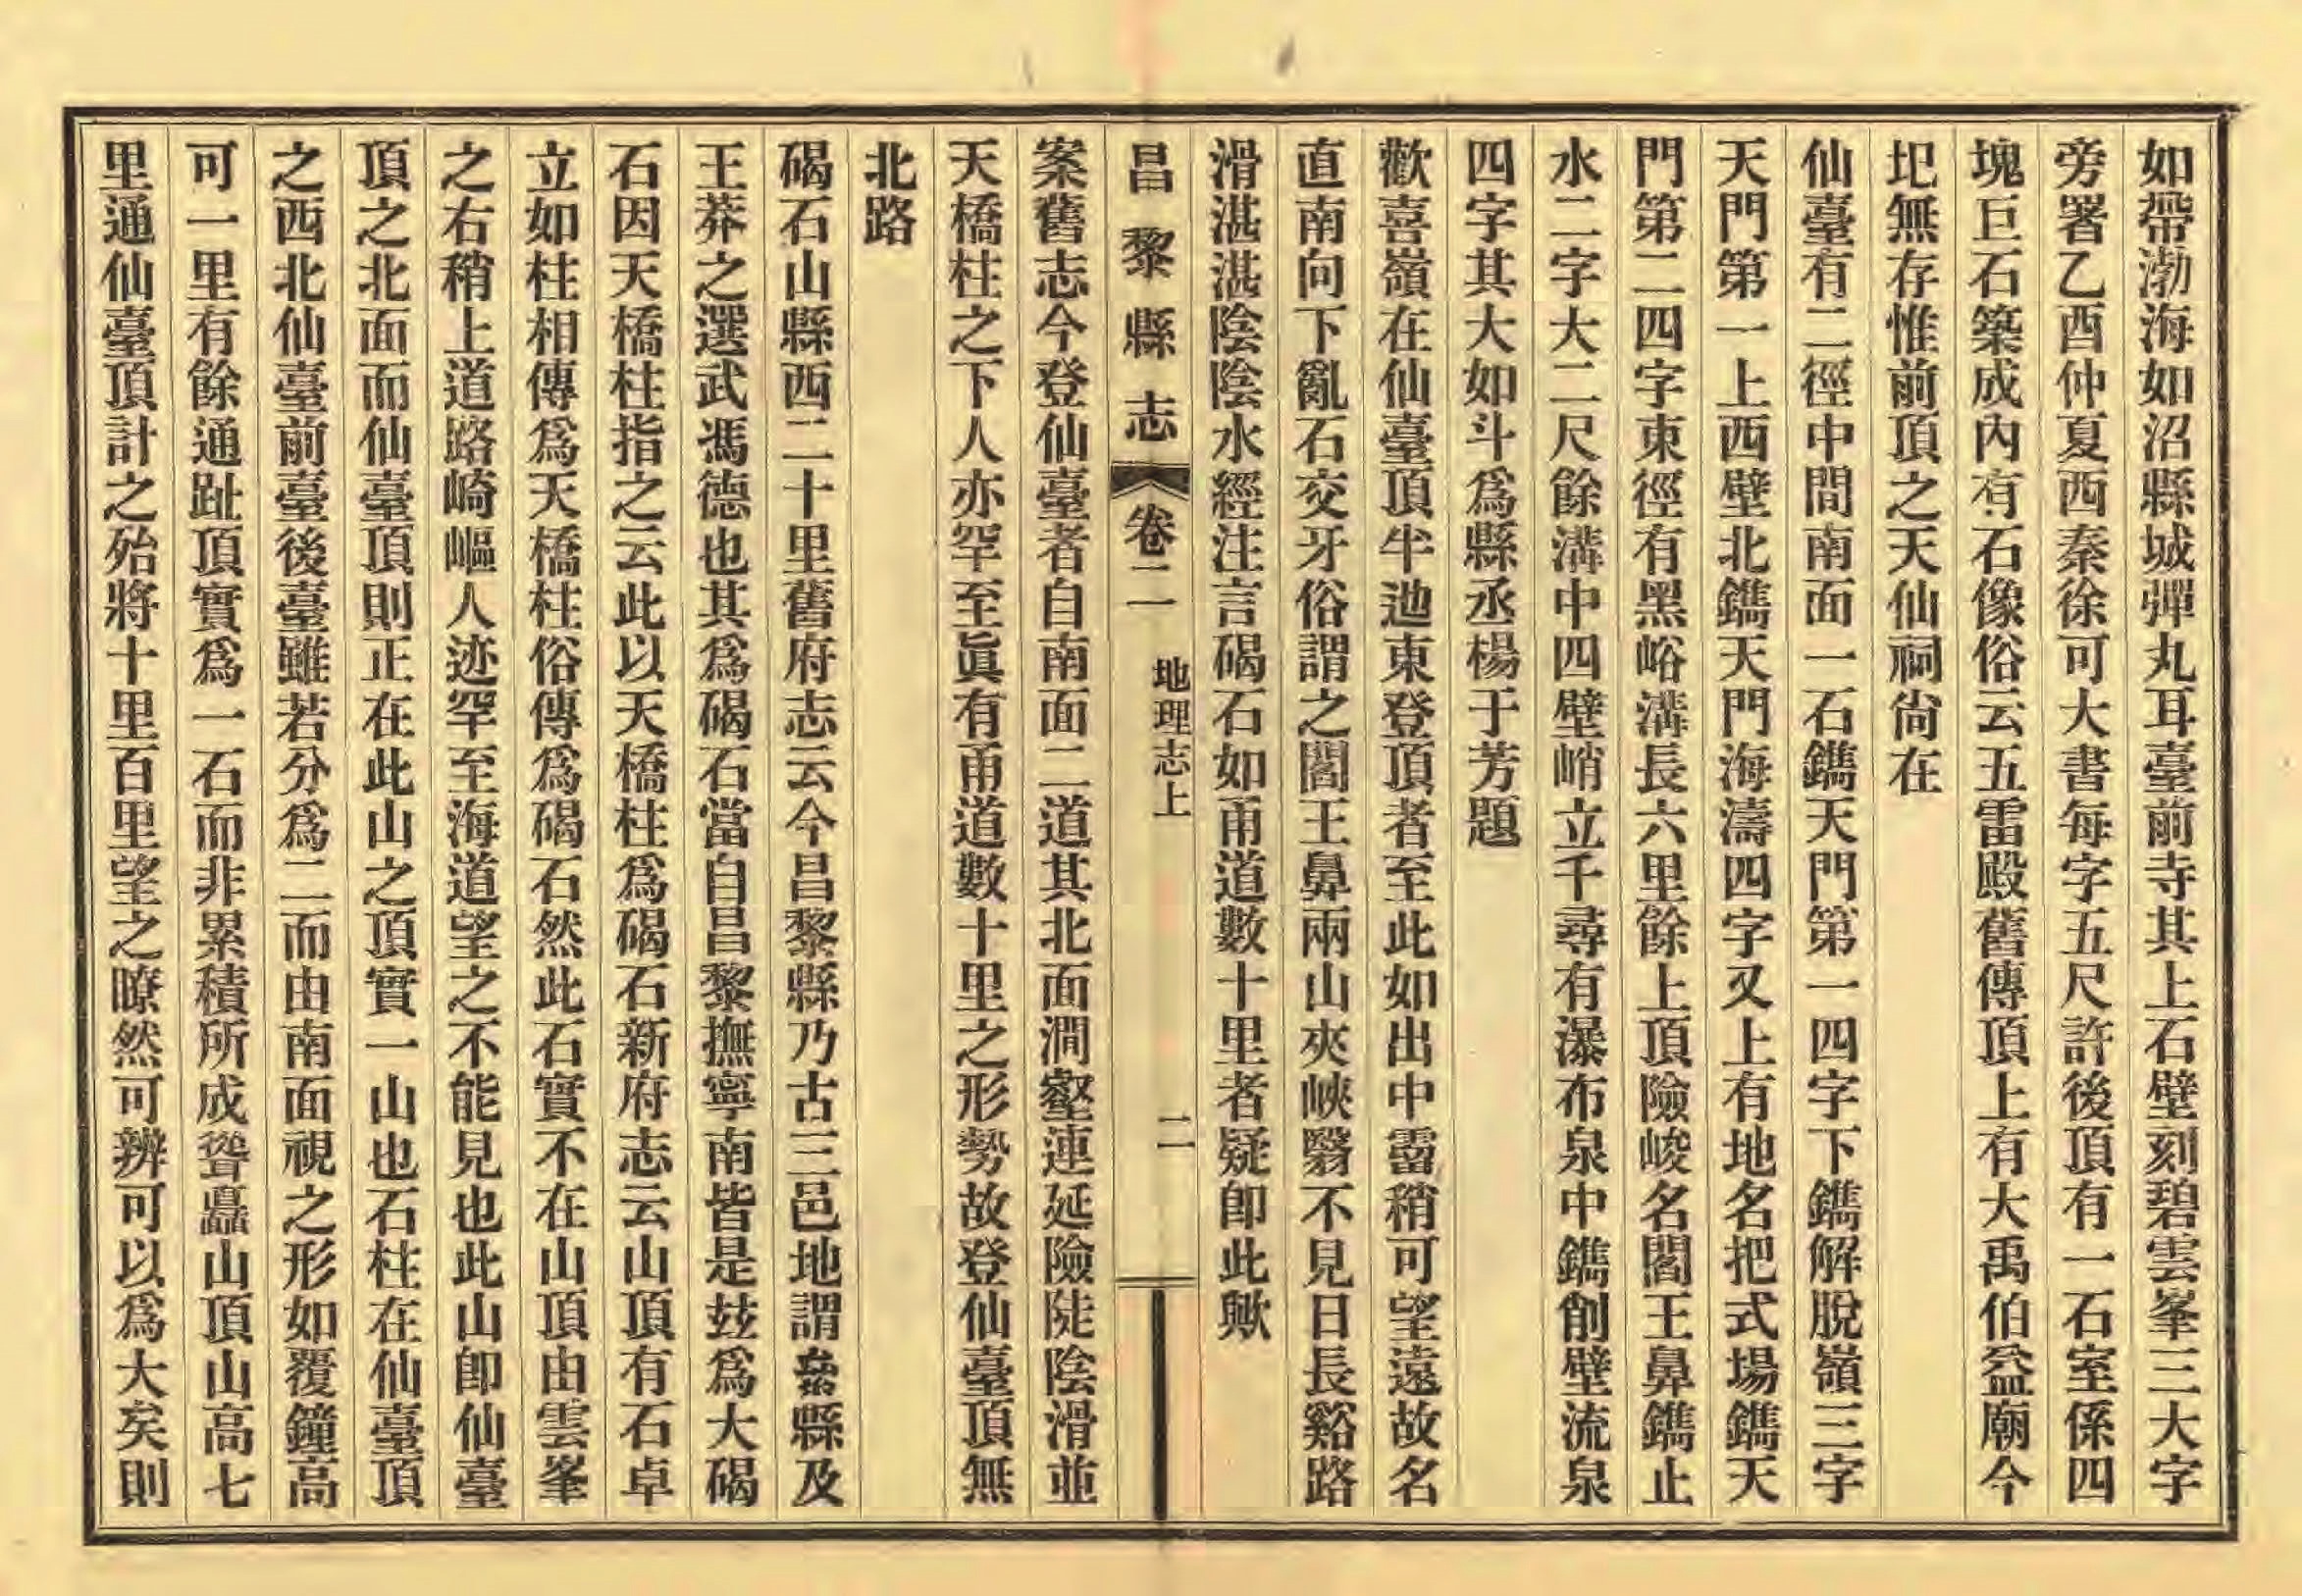 如帶渤海如沼縣城彈丸耳臺前寺其上石壁刻碧雲峯三大字
旁署乙酉仲夏西秦徐可大書每字五尺許後頂有一石室係四
塊巨石築成內有石像俗云五雷殿舊傳頂上有大禹伯益廟今
圯無存惟前頂之天仙祠尙在
仙臺有二徑中間南面一石鐫天門第一四字下鐫解脫嶺三字
天門第一上西壁北鐫天門海濤四字又上有地名把式場鐫天
門第二四字東徑有黑峪溝長六里餘上頂險峻名閻王鼻鐫止
水二字大二尺餘溝中四壁峭立千尋有瀑布泉中鐫削壁流泉
四字其大如斗爲縣丞楊于芳題
歡喜嶺在仙臺頂半迤東登頂者至此如出中霤稍可望遠故名
直南向下亂石交牙俗謂之閻王鼻兩山夾峽翳不見日長谿路
滑湛湛陰陰水經注言碣石如甬道數十里者疑卽此歟
昌黎縣志 卷二 地理志上 二
案舊志今登仙臺者自南面二道其北面澗壑連延險陡陰滑並
天橋柱之下人亦罕至眞有甬道數十里之形勢故登仙臺頂無
北路
碣石山縣西二十里舊府志云今昌黎縣乃古三邑地謂絫縣及
王莽之選武馮德也其爲碣石當自昌黎撫寧南皆是玆爲大碣
石因天橋柱指之云此以天橋柱爲碣石新府志云山頂有石卓
立如柱相傳爲天橋柱俗傳爲碣石然此石實不在山頂由雲峯
之右稍上道路崎嶇人迹罕至海道望之不能見也此山卽仙臺
頂之北面而仙臺頂則正在此山之頂實一山也石柱在仙臺頂
之西北仙臺前臺後臺雖若分爲二而由南面視之形如覆鐘高
可一里有餘通趾頂實爲一石而非累積所成聳矗山頂山高七
里通仙臺頂計之殆將十里百里望之瞭然可辨可以爲大矣則